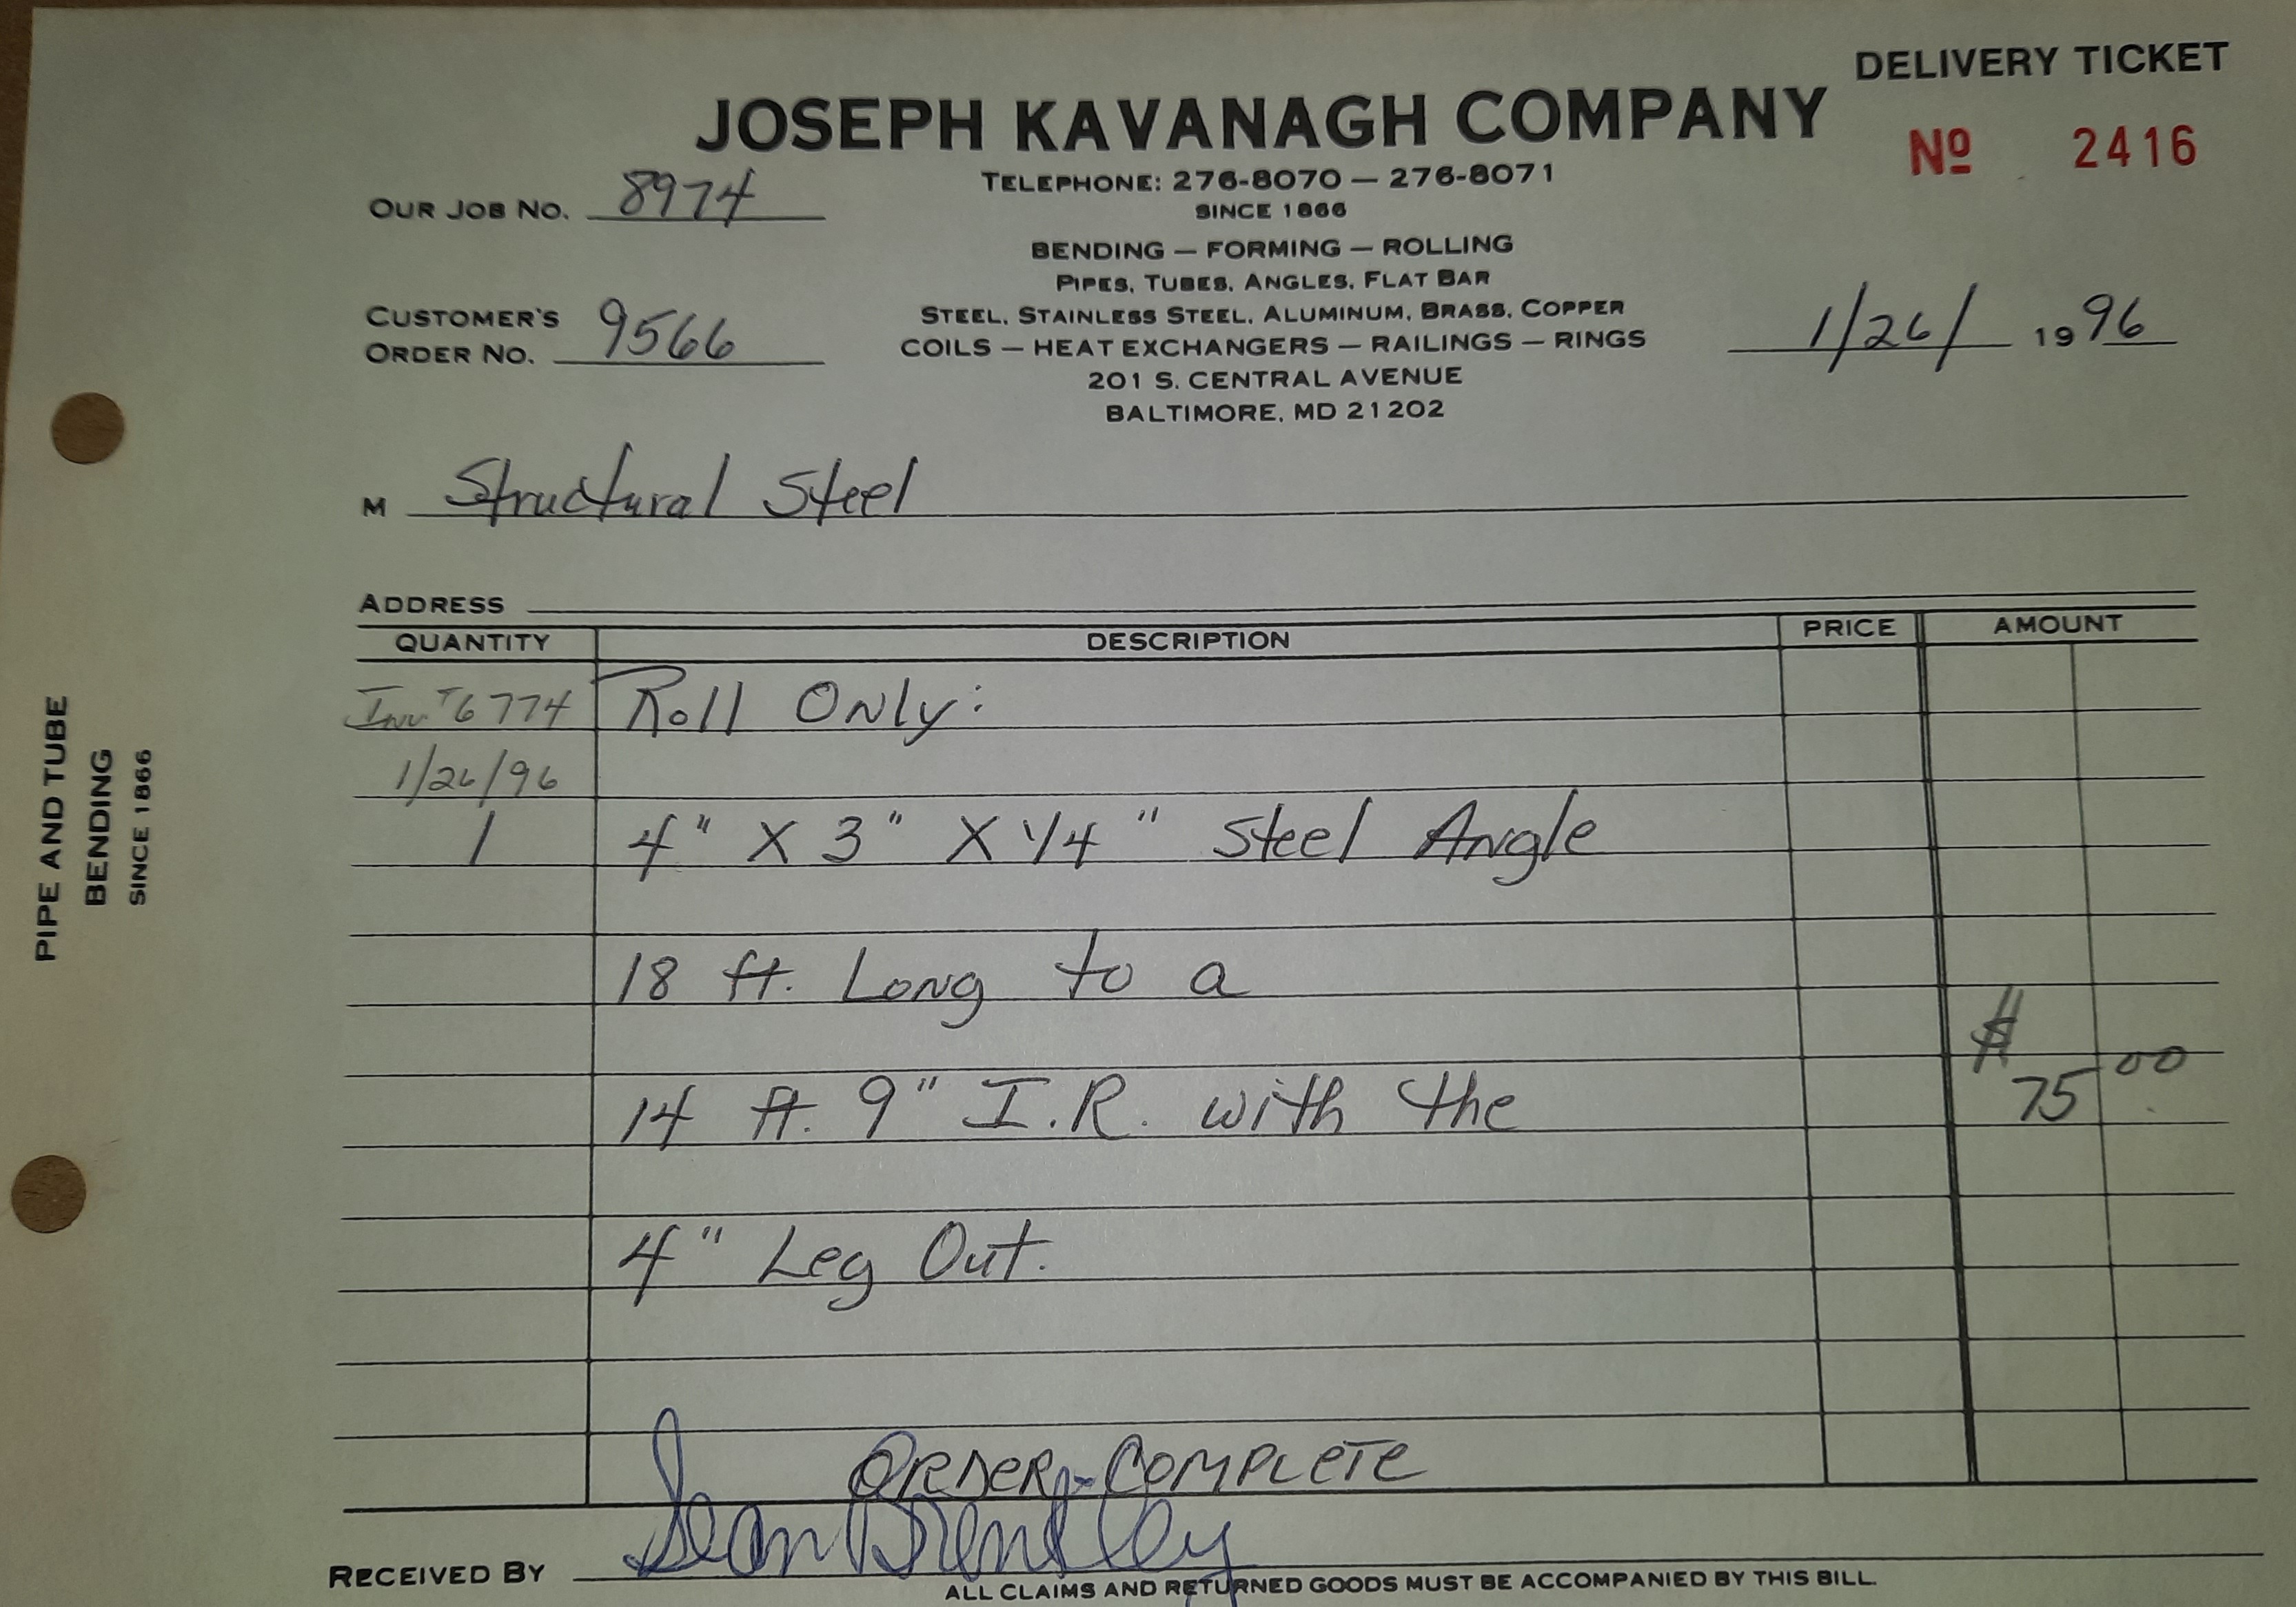 DELIVERY TICKET
JOSEPH KAVANAGH COMPANY
Nº 2416
TELEPHONE: 276-8070 — 276-8071
SINCE 1866
OUR JOB NO. 8974
BENDING — FORMING — ROLLING
PIPES, TUBES, ANGLES, FLAT BAR
STEEL, STAINLESS STEEL, ALUMINUM, BRASS, COPPER
COILS — HEAT EXCHANGERS — RAILINGS — RINGS
201 S. CENTRAL AVENUE
BALTIMORE, MD 21202
CUSTOMER'S
ORDER NO. 9566
1/26/ 1996
M Structural Steel
ADDRESS
QUANTITY DESCRIPTION PRICE AMOUNT
Inv. #6774 Roll Only:
1/26/96
1 4" X 3" X 1/4" Steel Angle
18 ft. Long to a
14 ft. 9" I.R. with the
$ 75 00
4" Leg Out.
ORDER-COMPLETE
RECEIVED BY Sean
ALL CLAIMS AND RETURNED GOODS MUST BE ACCOMPANIED BY THIS BILL.
PIPE AND TUBE
BENDING
SINCE 1866